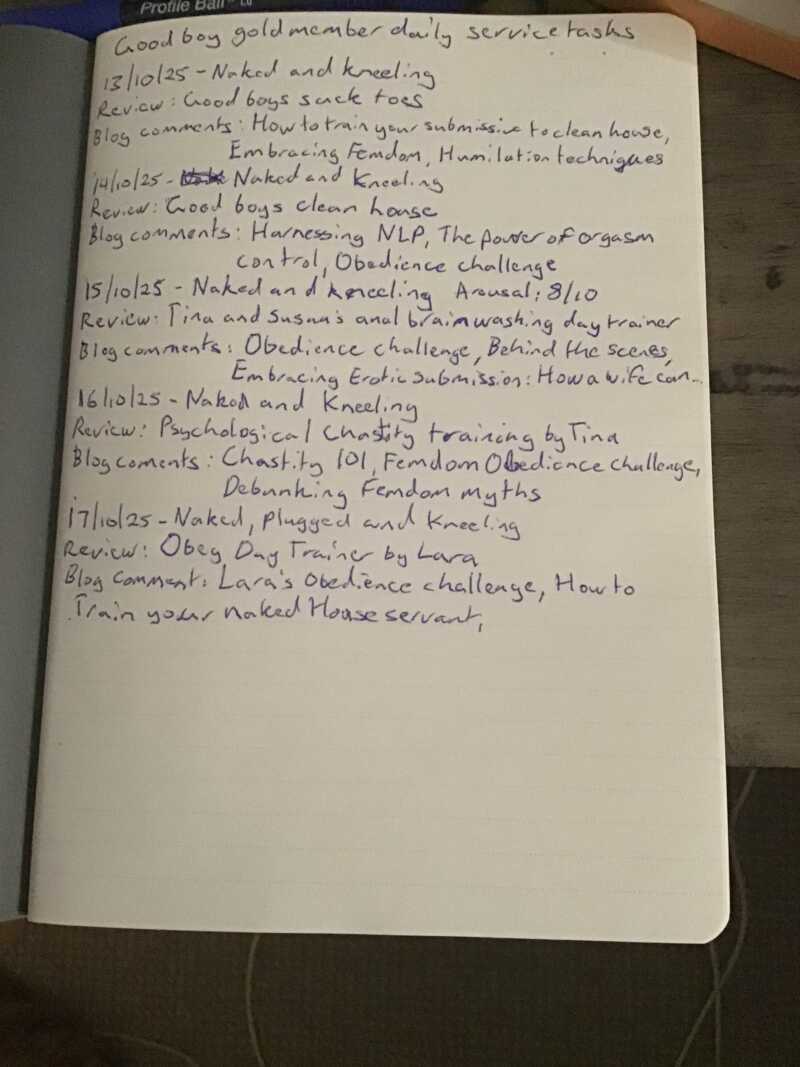 Profile Ball
Good boy gold member daily service tasks
13/10/25 - Naked and kneeling
Review: Good boys suck toes
Blog comments: How to train your submissive to clean house,
Embracing Femdom, Humilation techniques
14/10/25 - Naked and Kneeling
Review: Good boys clean house
Blog comments: Harnessing NLP, The power of orgasm
control, Obedience challenge
15/10/25 - Naked and kneeling Arousal: 8/10
Review: Tina and Susan's anal brainwashing day trainer
Blog comments: Obedience challenge, Behind the scenes,
Embracing Erotic submission: How a wife can...
16/10/25 - Naked and Kneeling
Review: Psychological Chastity training by Tina
Blog coments: Chastity 101, Femdom Obedience challenge,
Debunking Femdom myths
17/10/25 - Naked, plugged and Kneeling
Review: Obey Day Trainer by Lara
Blog comment: Lara's Obedience challenge, How to
Train your naked House servant,